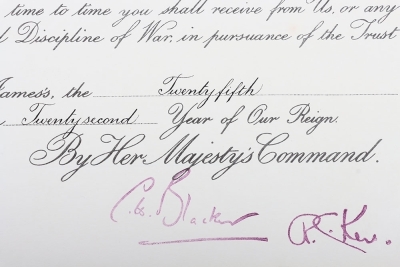 time to time you shall receive from Us, or any
Discipline of War, in pursuance of the Trust
James's, the Twenty fifth
Twenty second Year of Our Reign.
By Her Majesty's Command.
Blacker